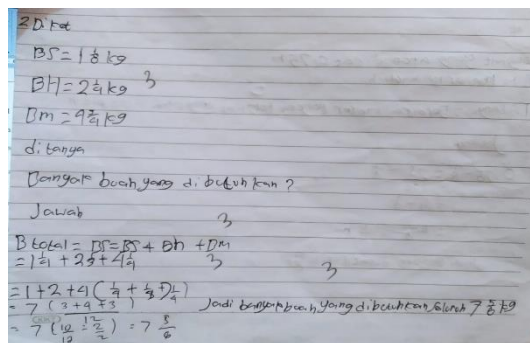 2 Diket
BS = 1 1/8 kg
BH = 2 1/4 kg 3
Bm = 4 3/4 kg
ditanya
Banyak buah yang dibutuhkan?
Jawab
3
B total = BS = BS + Bh + Dm
= 1 1/4 + 2 + 4 1/4 3
3
= 1 + 2 + 4 ( 1/4 + 1/3 + 1/4
= 7 ( 3 + 4 + 3 ) Jadi banyak buah yang dibutuhkan 7 5/6 kg
12
= 7 ( 10/12 : 2/2 ) = 7 5/6